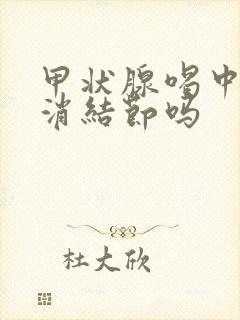 甲状腺喝中
消结节吗
杜大欣